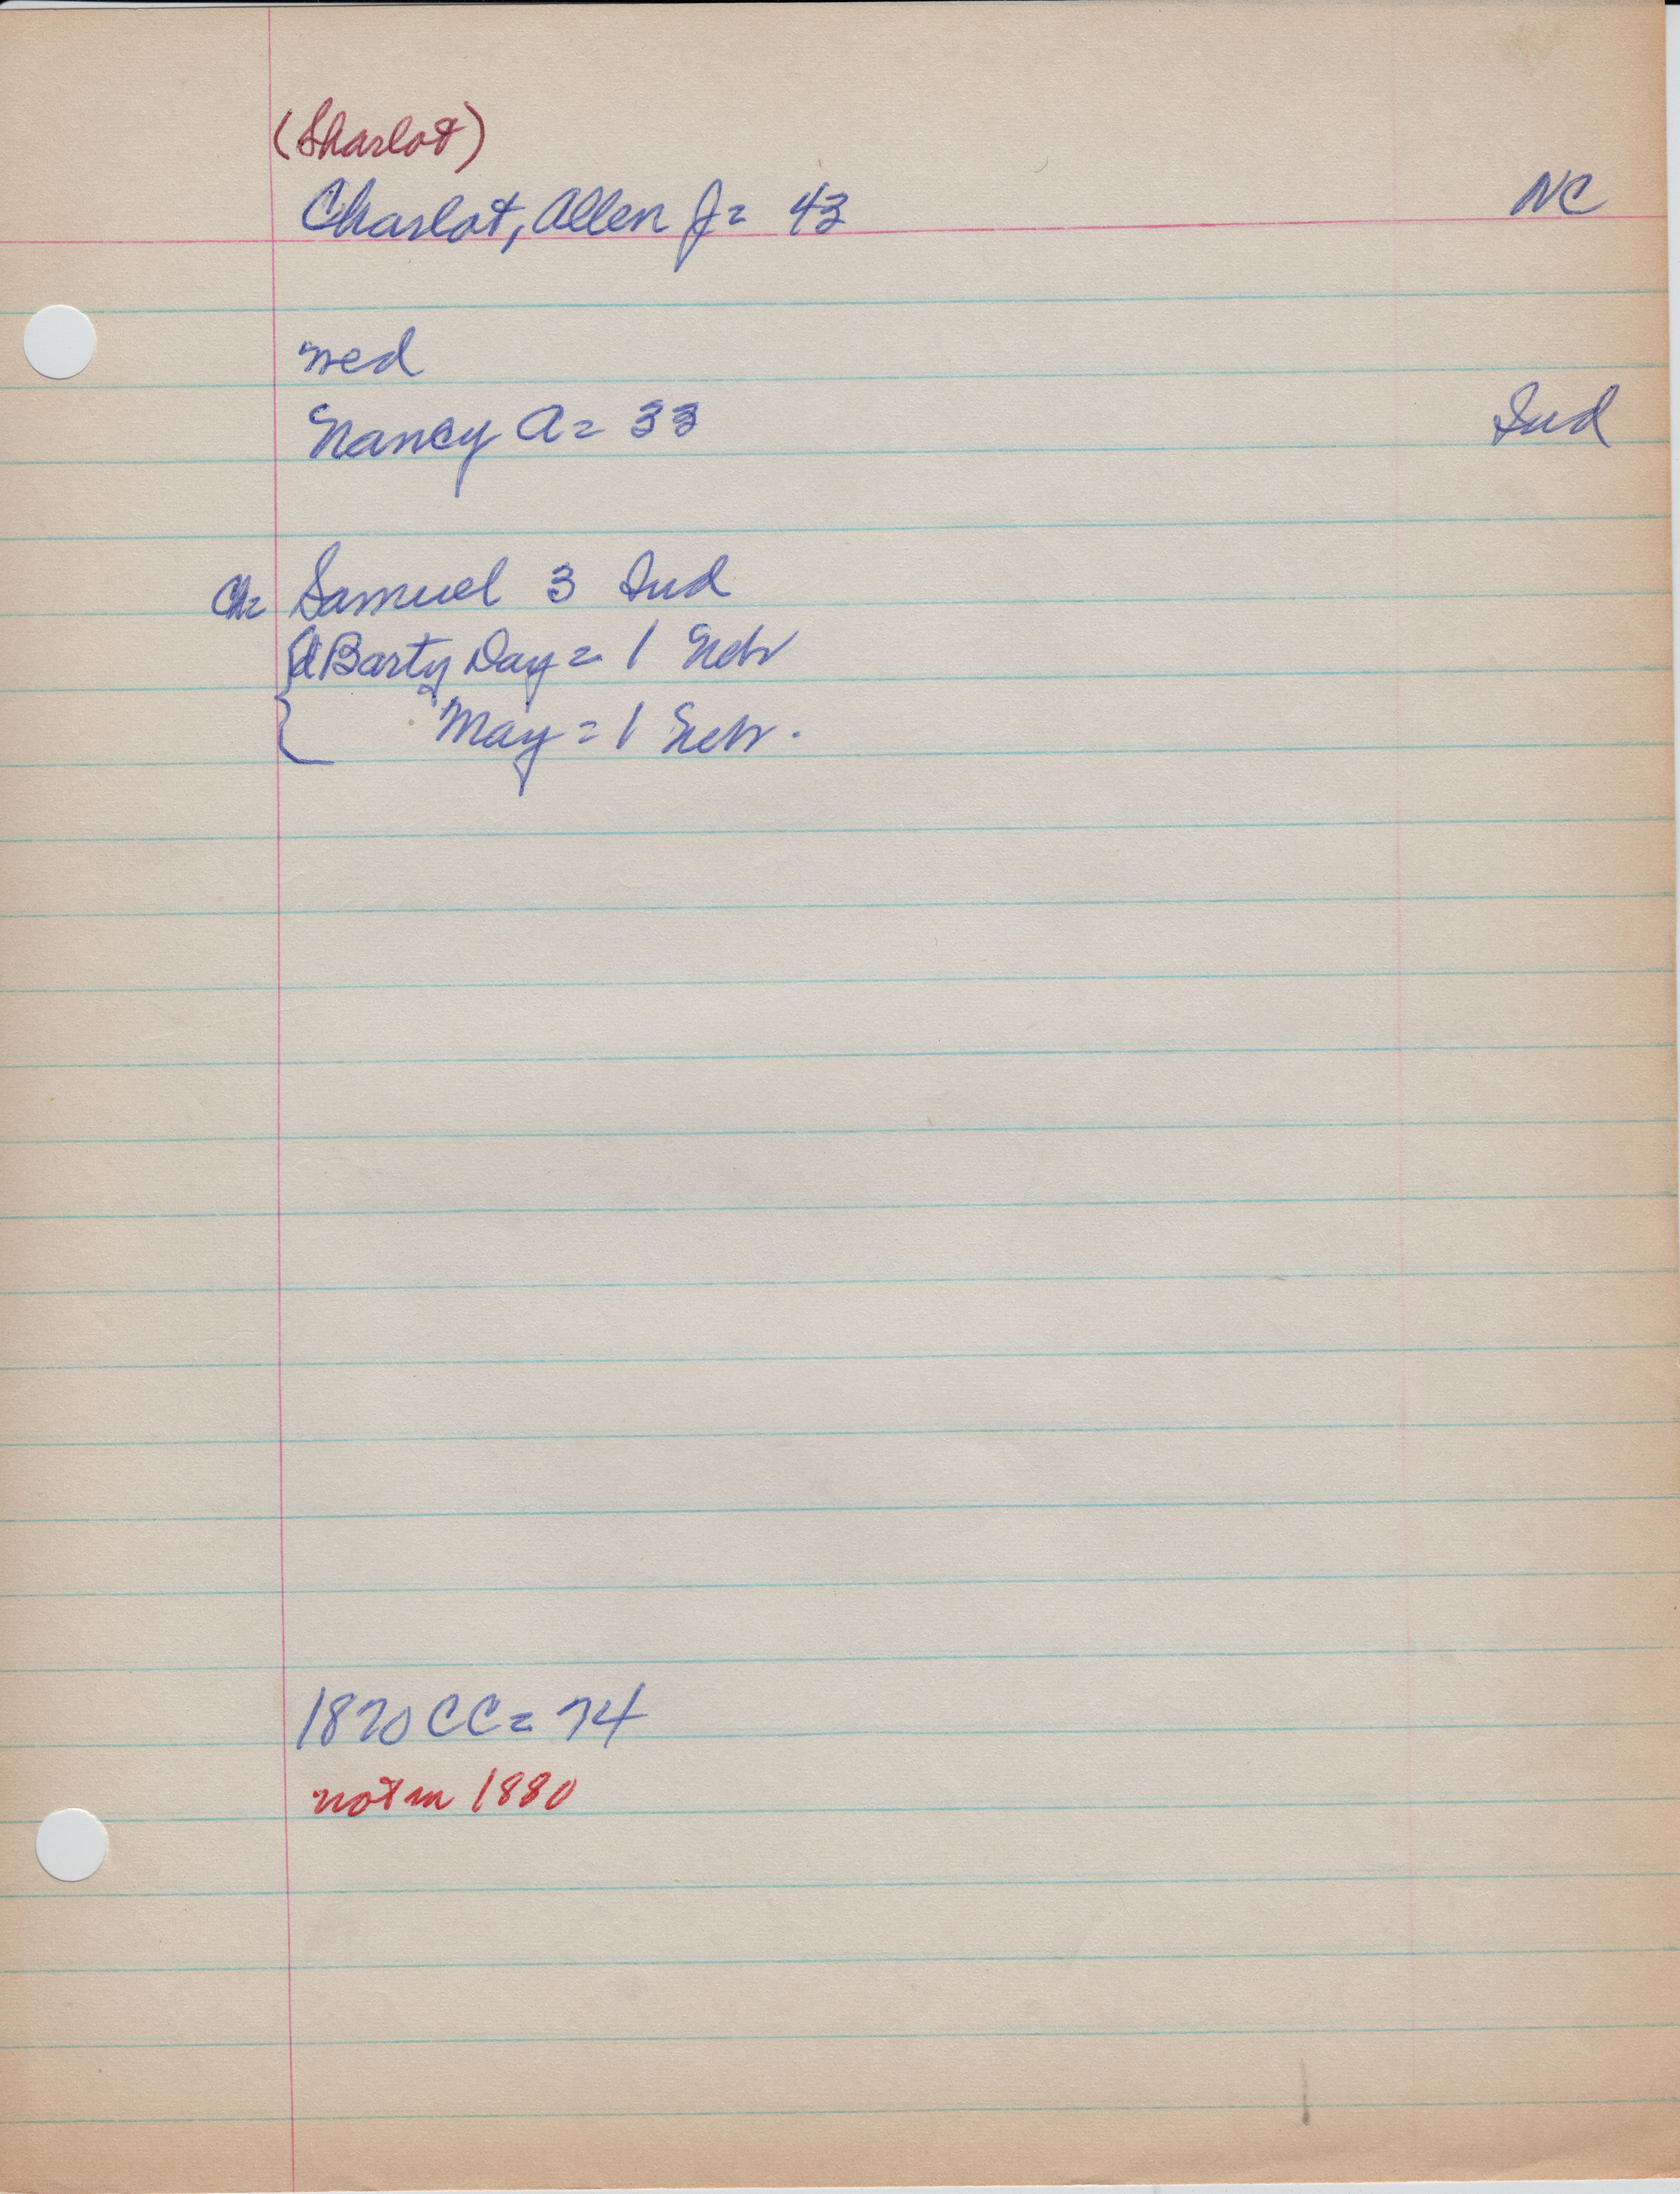 (Sharlot)
Charlot, Allen J= 43 NC
med
Nancy A= 33 Ind
Ch= Samuel 3 Ind
Barty Day= 1 Nebr
May= 1 Nebr.
1870 CC= 74
not in 1880